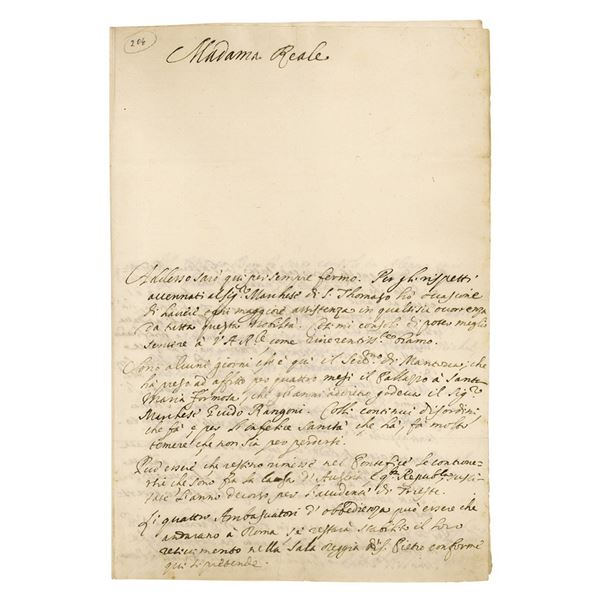 206
Madama Reale
Adesso sarò qui per sempre fermo. Per gli rispetti
accennati al Sigr. Marchese di S. Thomaso hò occasione
di havere ogni maggiore assistenza in qualsisia occorrenza
da tutta questa Nobiltà. Et mi consolo di poter meglio
servire à V. A. R.le come
Sono alcuni giorni che è qui il Sermo. di Mantova, che
hà preso ad affitto per quattro mesi il Palazzo à Santa
Maria Formosa, che gli anni adietro godeva il Sigr.
Marchese Guido Rangoni. Colli continui disordini,
che fà e per l' Sanità che hà, fà molto
temere che non stà per perdersi.
Può essere che restino rimesse nel Pontefice le
che sono frà la Casa d'Austria e qta. Republca.
l'anno decorso per l'accidente di Trieste.
Li quattro Ambasciatori d'obbedienza può essere che
andarano à Roma se resterà stabilito il loro
ricevimento nella Sala Reggia di S. Pietro conforme
qui si pretende.